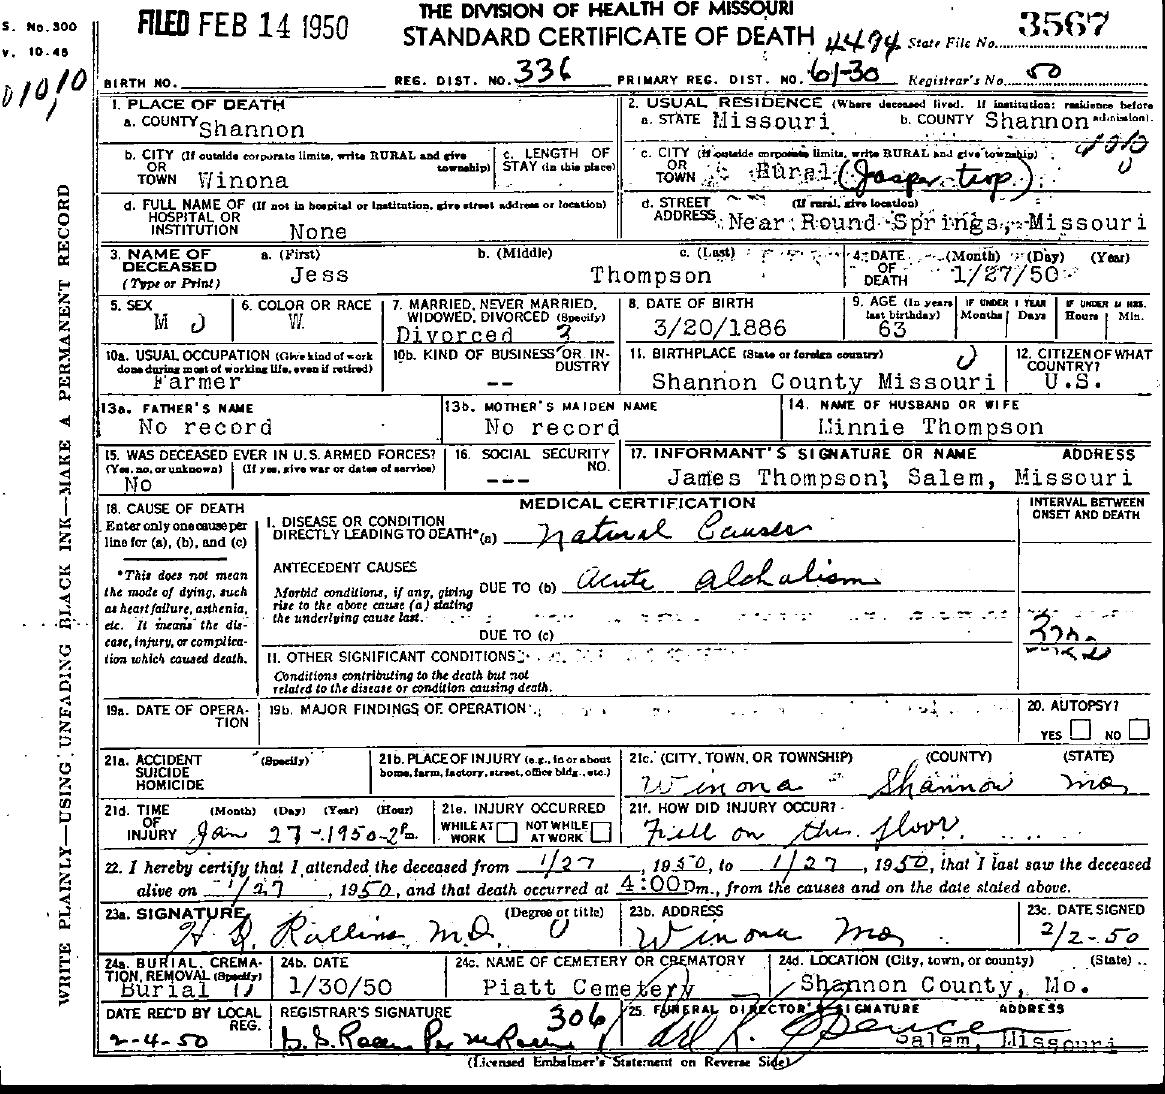 THE DIVISION OF HEALTH OF MISSOURI
S. No. 300
V. 10-48
FILED FEB 14 1950
STANDARD CERTIFICATE OF DEATH 4494 State File No. 3567
01010
BIRTH NO. REG. DIST. NO. 336 PRIMARY REG. DIST. NO. 61-30 Registrar's No. 50
WRITE PLAINLY—USING UNFADING BLACK INK—MAKE A PERMANENT RECORD
1. PLACE OF DEATH
a. COUNTY Shannon
2. USUAL RESIDENCE (Where deceased lived. If institution: residence before admission).
a. STATE Missouri b. COUNTY Shannon
b. CITY (If outside corporate limits, write RURAL and give township)
OR
TOWN Winona
c. LENGTH OF STAY (in this place)
c. CITY (If outside corporate limits, write RURAL and give township)
OR
TOWN Rural (Jasper twp)
d. FULL NAME OF (If not in hospital or institution, give street address or location)
HOSPITAL OR
INSTITUTION None
d. STREET (If rural, give location)
ADDRESS Near Round Springs, Missouri
3. NAME OF DECEASED (Type or Print)
a. (First) b. (Middle) c. (Last)
Jess Thompson
4. DATE OF DEATH (Month) (Day) (Year)
1/27/50
5. SEX
M
6. COLOR OR RACE
W.
7. MARRIED, NEVER MARRIED, WIDOWED, DIVORCED (Specify)
Divorced 3
8. DATE OF BIRTH
3/20/1886
9. AGE (In years last birthday)
63
IF UNDER 1 YEAR Months Days
IF UNDER 24 HRS. Hours Min.
10a. USUAL OCCUPATION (Give kind of work done during most of working life, even if retired)
Farmer
10b. KIND OF BUSINESS OR INDUSTRY
--
11. BIRTHPLACE (State or foreign country)
Shannon County Missouri
12. CITIZEN OF WHAT COUNTRY?
U.S.
13a. FATHER'S NAME
No record
13b. MOTHER'S MAIDEN NAME
No record
14. NAME OF HUSBAND OR WIFE
Minnie Thompson
15. WAS DECEASED EVER IN U.S. ARMED FORCES?
(Yes, no, or unknown) (If yes, give war or dates of service)
No
16. SOCIAL SECURITY NO.
---
17. INFORMANT'S SIGNATURE OR NAME ADDRESS
James Thompson, Salem, Missouri
18. CAUSE OF DEATH
Enter only one cause per line for (a), (b), and (c)
*This does not mean the mode of dying, such as heart failure, asthenia, etc. It means the disease, injury, or complication which caused death.
MEDICAL CERTIFICATION
INTERVAL BETWEEN ONSET AND DEATH
I. DISEASE OR CONDITION
DIRECTLY LEADING TO DEATH*(a) Natural Causes
ANTECEDENT CAUSES
Morbid conditions, if any, giving rise to the above cause (a) stating the underlying cause last.
DUE TO (b) Acute alchalism
DUE TO (c)
II. OTHER SIGNIFICANT CONDITIONS
Conditions contributing to the death but not related to the disease or condition causing death.
19a. DATE OF OPERATION
19b. MAJOR FINDINGS OF OPERATION
20. AUTOPSY?
YES NO
21a. ACCIDENT SUICIDE HOMICIDE (Specify)
21b. PLACE OF INJURY (e.g., in or about home, farm, factory, street, office bldg., etc.)
21c. (CITY, TOWN, OR TOWNSHIP) (COUNTY) (STATE)
Winona Shannon Mo
21d. TIME OF INJURY (Month) (Day) (Year) (Hour)
Jan 27-1950-2Pm.
21e. INJURY OCCURRED
WHILE AT WORK NOT WHILE AT WORK
21f. HOW DID INJURY OCCUR?
Fell on the floor
22. I hereby certify that I attended the deceased from 1/27, 1950, to 1/27, 1950, that I last saw the deceased
alive on 1/27, 1950, and that death occurred at 4:00Pm., from the causes and on the date stated above.
23a. SIGNATURE (Degree or title)
H D. Rollins, M.D.
23b. ADDRESS
Winona Mo
23c. DATE SIGNED
2/2-50
24a. BURIAL, CREMATION, REMOVAL (Specify)
Burial
24b. DATE
1/30/50
24c. NAME OF CEMETERY OR CREMATORY
Piatt Cemetery
24d. LOCATION (City, town, or county) (State)
Shannon County, Mo.
DATE REC'D BY LOCAL REG.
2-4-50
REGISTRAR'S SIGNATURE
306
25. FUNERAL DIRECTOR'S SIGNATURE ADDRESS
Spencer
Salem, Missouri
(Licensed Embalmer's Statement on Reverse Side)